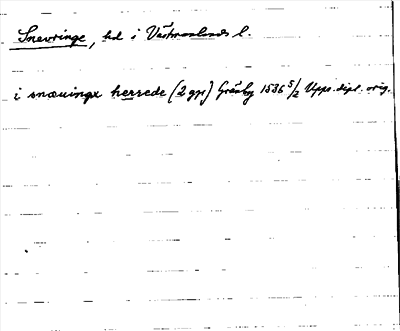 Snevringe, hd i Västmanlands l.
i snæuinga herrede (2 gg) Gränby 1536 5/2 Upps. dipl. orig.